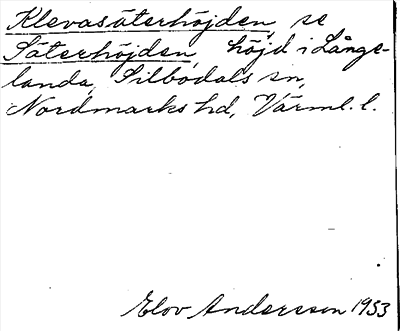 Klevasäterhöjden, se
Säterhöjden, höjd i Långe-
landa, Silbodals sn,
Nordmarks hd, Värml. l.
Elov Andersson 1953